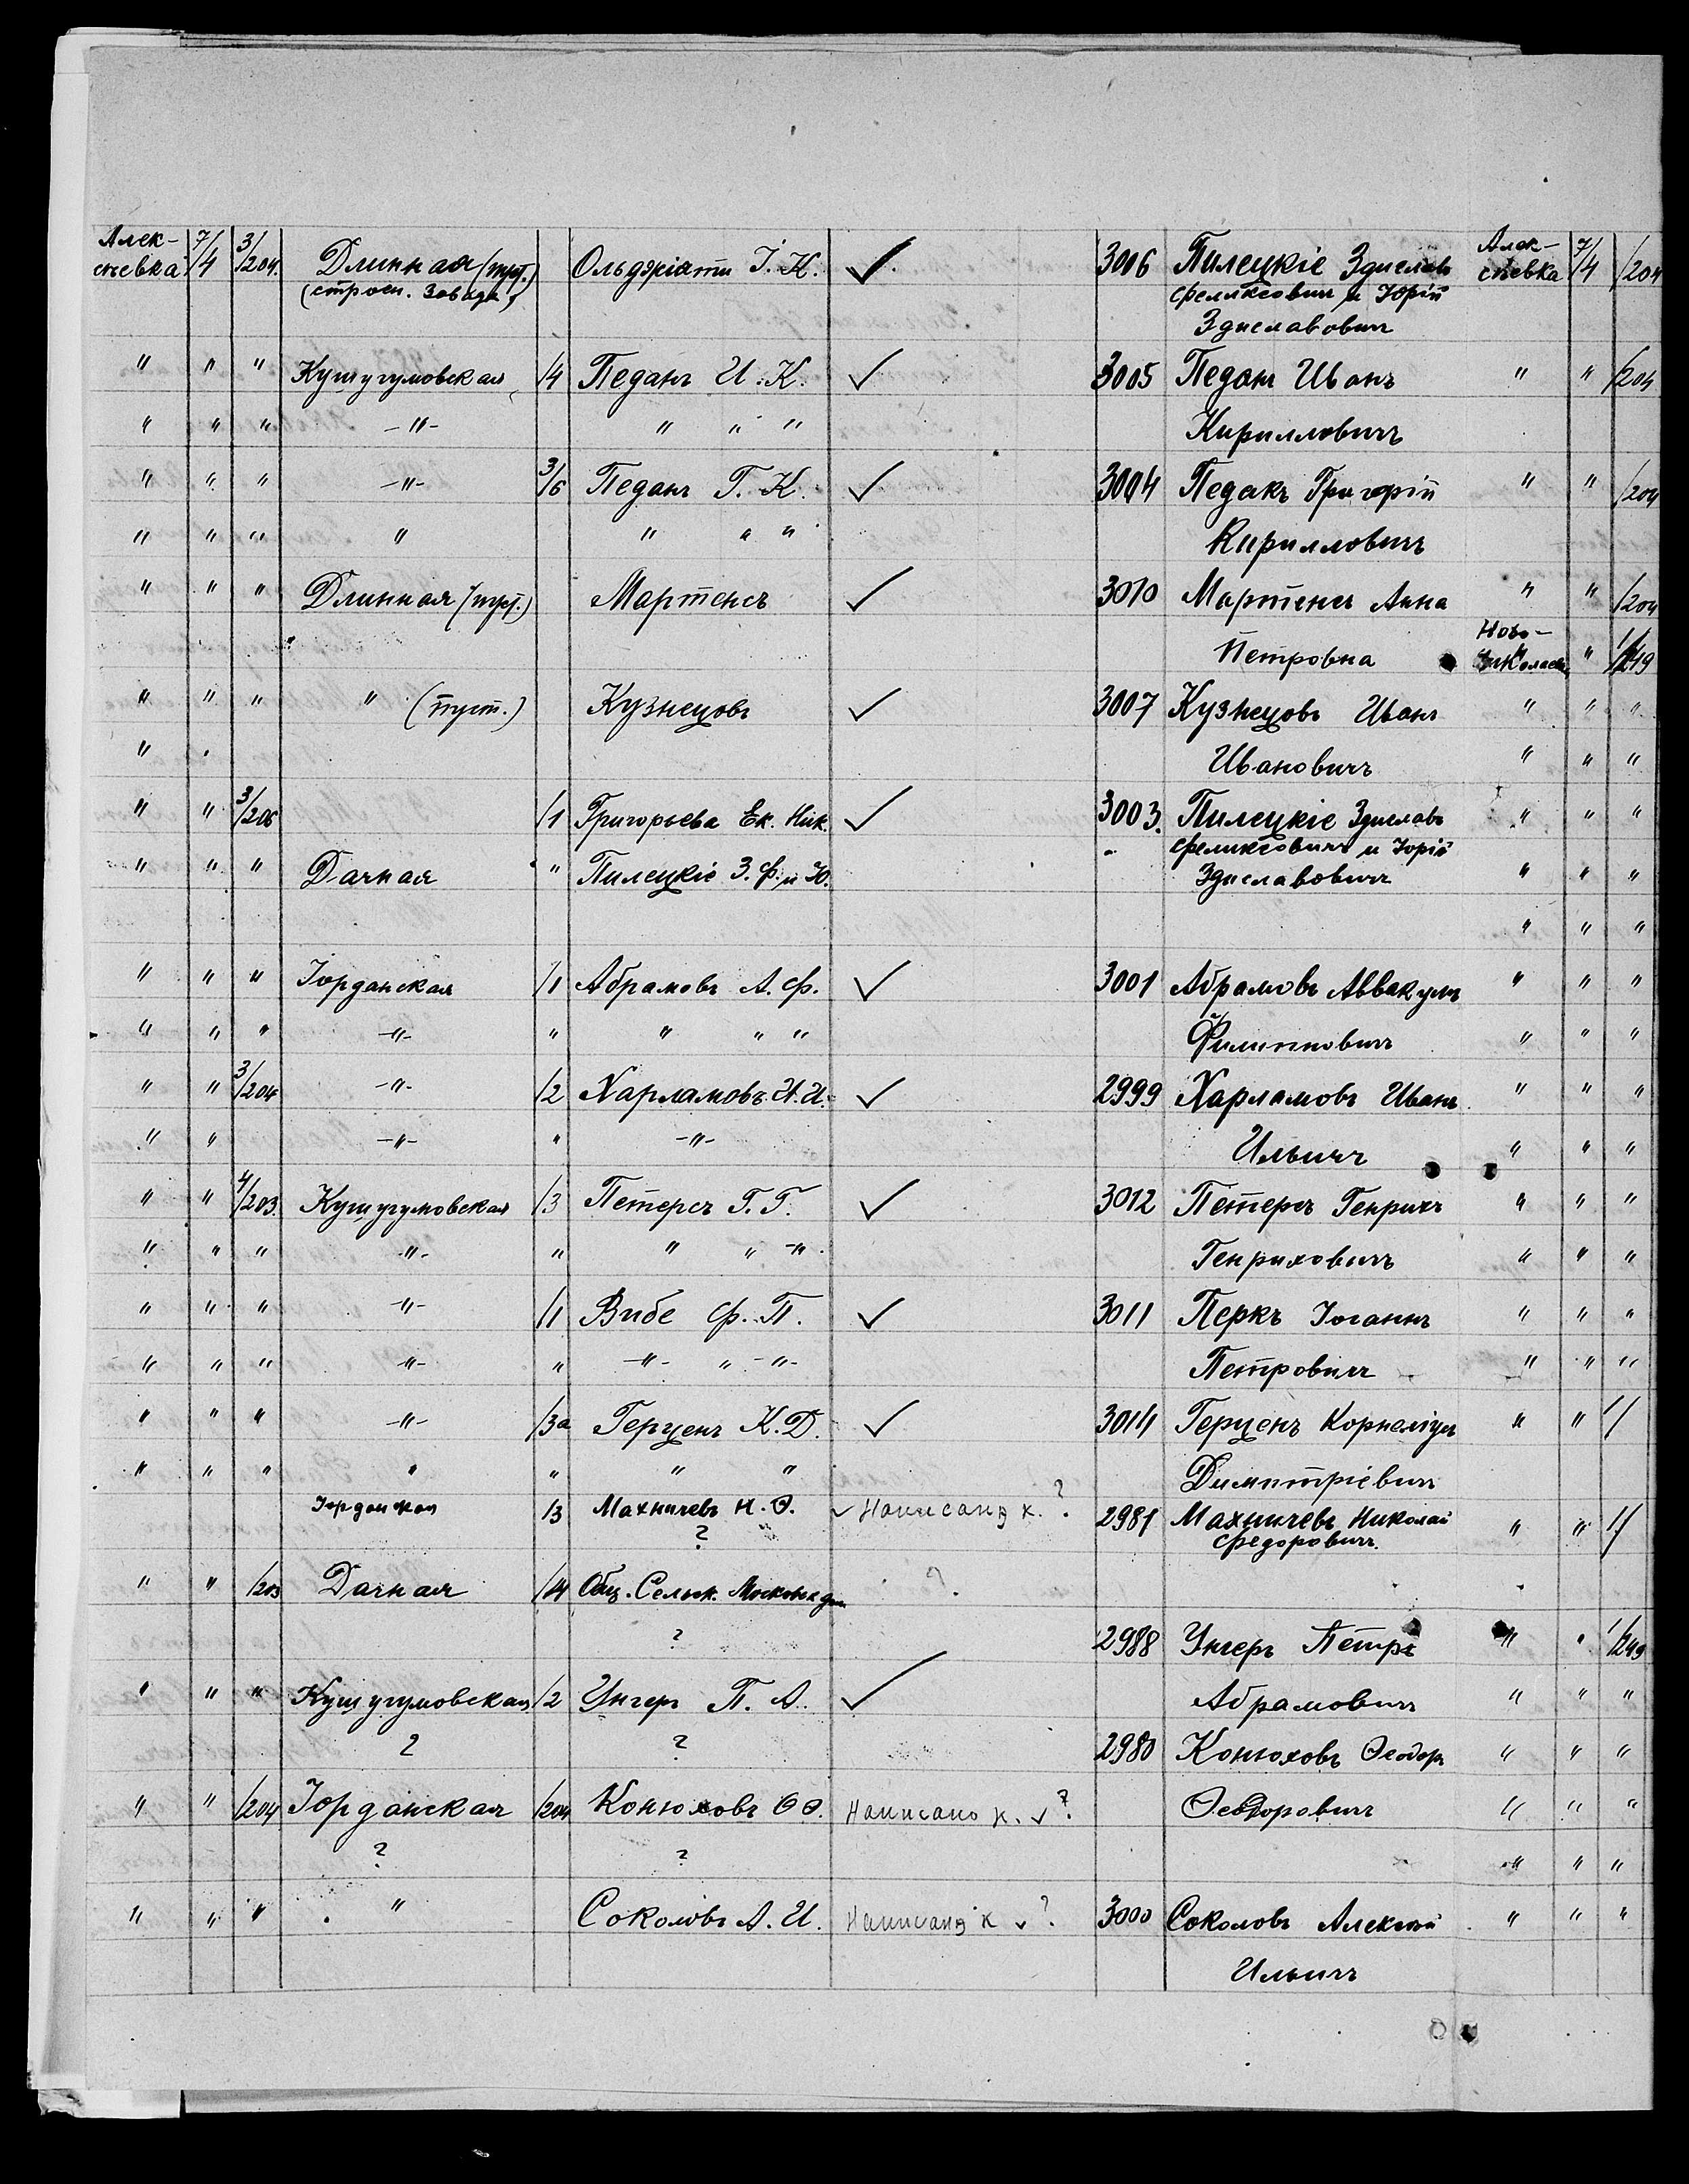 Алек- 7/ 3/ Алек- 7/
сѣевка 4 204. Длинная (пуст.) Ольдэріати І. К. ✓ 3006 Пилецкіе Здислав сѣевка 4 /204
(строен. Завада) Феликсович и Юрій
Здиславович
" " " Кушугумовская /4 Педанъ И. К. ✓ 3005 Педанъ Иванъ " " /204
" " " -"- " " " Кирилловичъ
" " " -"- 3/6 Педанъ Г. К. ✓ 3004 Педакъ Григорій " " /204
" " " " " " " Кирилловичъ
" " " Длинная (пуст.) Мартенсъ ✓ 3010 Мартенсъ Анна " " /204
Ново-
" Петровна " 1/249
" " " " (пуст.) Кузнецовъ ✓ 3007 Кузнецовъ Иванъ " " "
" Ивановичъ " " "
" " 3/206 /1 Григорьева Ек. Ник. ✓ 3003. Пилецкіе Здиславъ " " "
Феликсовичъ и Юрій
" " " Дачная " Пилецкіе З. Ф. и Ю. Здиславовичъ " " "
" " "
" " " Іорданская /1 Абрамовъ А. Ф. ✓ 3001 Абрамовъ Аввакумъ " " "
" " " -"- " " " " Филипповичъ " " "
" " 3/204 -"- /2 Харламовъ И. И. ✓ 2999 Харламовъ Иванъ " " "
" " -"- " -"- Ильичъ " " "
" " 4/203. Кушугумовская /3 Петерсъ Г. Г. ✓ 3012 Петерсъ Генрихъ " " "
" " " -"- " " " -"- Генриховичъ " " "
" " " -"- /1 Вибе Ф. П. ✓ 3011 Перкъ Іоганнъ " " "
" " " -"- " -"- " -"- Петровичъ " " "
" " " -"- /3а Герценъ К. Д. ✓ 3014 Герценъ Корнеліусъ " " 1/
" " " " " " " Димитріевичъ
Іорданская /3 Махничевъ Н. Ѳ. ✓ Написана к. ? 2981 Махничевъ Николай " " 1/
? Федоровичъ.
" " /203 Дачная /14 Общ. Сельск. ?
? 2988 Унгеръ Петръ " " 1/249
" " " Кушугумовская /2 Унгеръ П. А. ✓ Абрамовичъ " " "
? ? 2980 Конюховъ Ѳеодоръ " " "
" " /204 Іорданская /204 Конюховъ Ѳ Ѳ. Написано к. ✓ ? Ѳеодоровичъ " " "
? ? " " "
" " " " Соколовъ А. И. Написана к ✓ ? 3000 Соколовъ Алексѣй " " "
Ильичъ